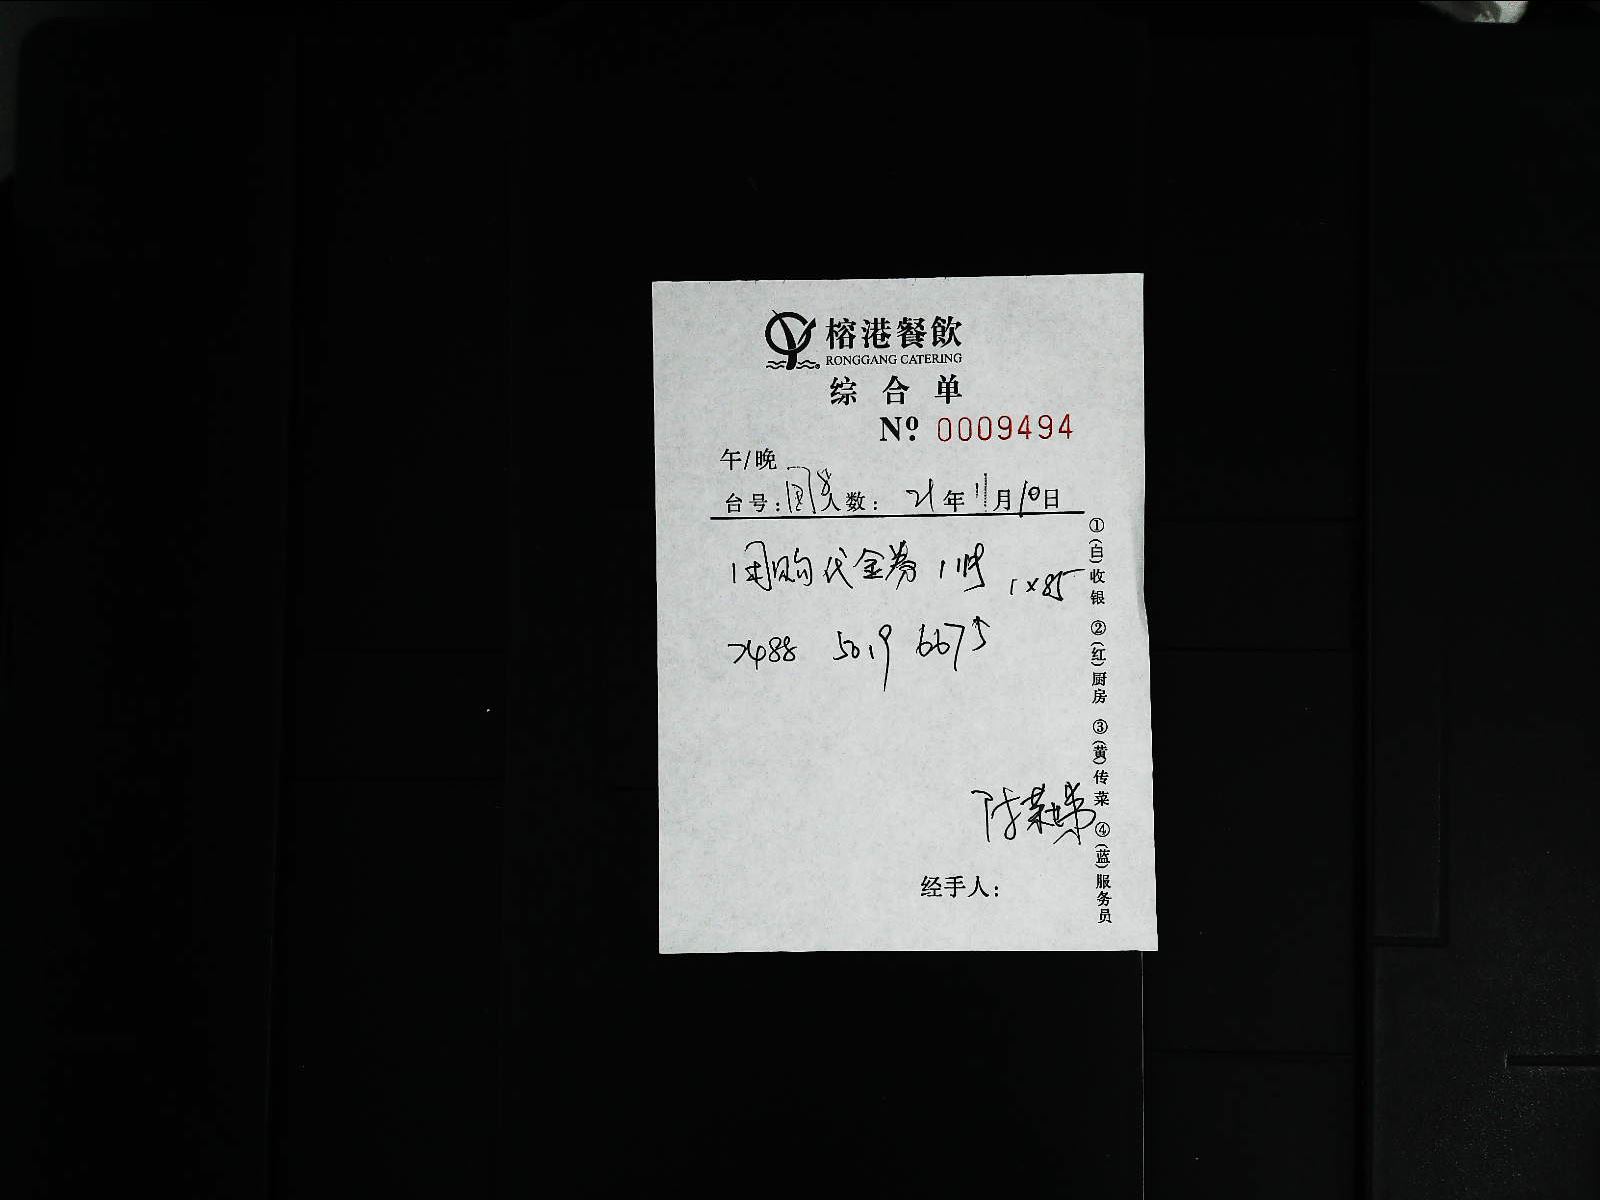 榕港餐飲
RONGGANG CATERING
综合单
Nº 0009494
午/晚
台号: 人数: 21年11月10日
团购代金券 1张 1×85
7488 5019 6675
陈荣娣
经手人:
①(白)收银 ②(红)厨房 ③(黄)传菜 ④(蓝)服务员